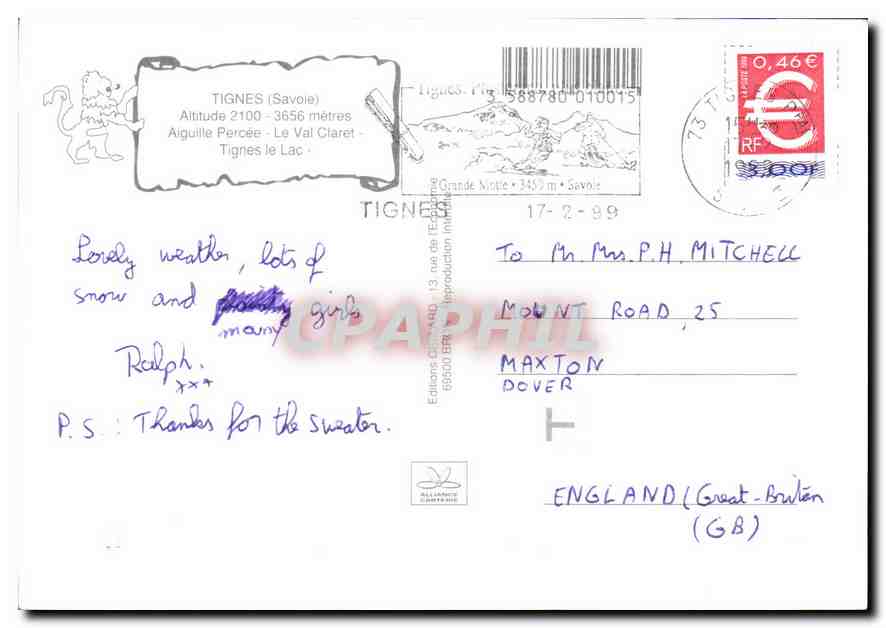 TIGNES (Savoie)
Altitude 2100 - 3656 mètres
Aiguille Percée - Le Val Claret -
Tignes le Lac -
3 588780 010015
Grande Motte • 3450 m • Savoie
TIGNES 17-2-99
73 TIGNES
0,46 €
LA POSTE 1999
RF
3,00F
Lovely weather, lots of
snow and girls
many
Ralph.
xxx
P.S.: Thanks for the sweater.
Editions - 13, rue de l'Economie
69500 BRON Reproduction interdite
CPAPHIL
To Mr Mrs. P.H. MITCHELL
MOUNT ROAD, 25
MAXTON
DOVER
T
ALLIANCE
CARTERIE
ENGLAND (Great-Britain
(GB)